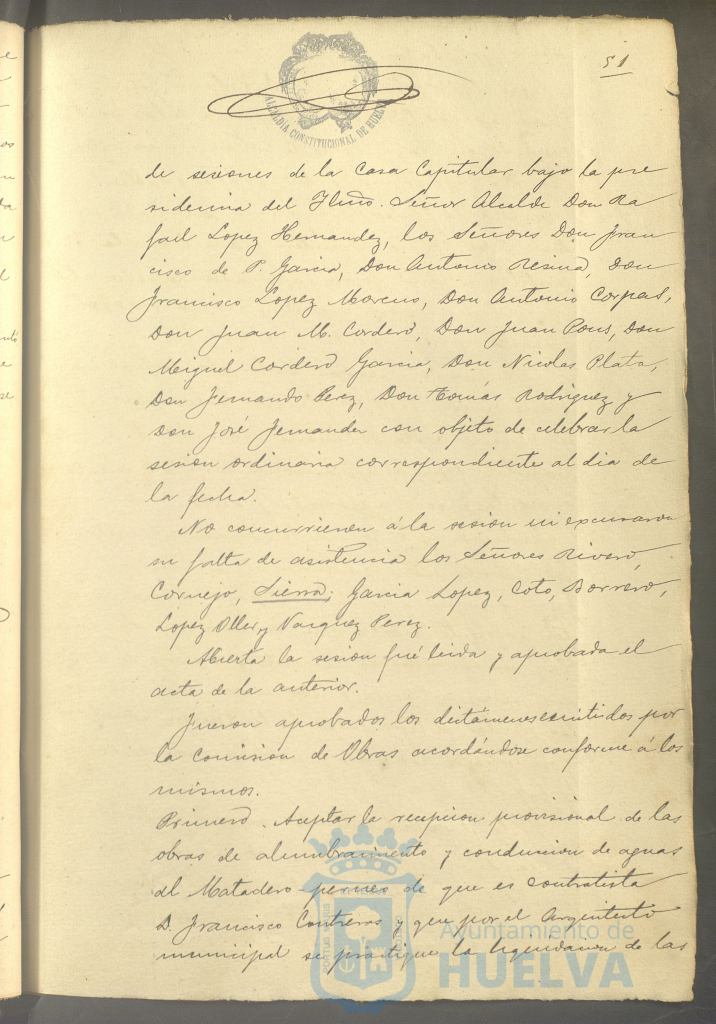 51
ALCALDIA CONSTITUCIONAL DE HUELVA
de sesiones de la Casa Capitular bajo la pre
sidencia del Yltmo. Señor Alcalde Don Ra
fael Lopez Hernandez, los Señores Don Fran
cisco de P. Garcia, Don Antonio Resina, Don
Francisco Lopez Moreno, Don Antonio Corpas,
Don Juan M. Cordero, Don Juan Pons, Don
Miguel Cordero Garcia, Don Nicolas Plata,
Don Fernando Perez, Don Tomás Rodriguez y
Don José Fernandez con objeto de celebrar la
sesion ordinaria correspondiente al dia de
la fecha.
No concurrieron á la sesion ni excusaron
su falta de asistencia los Señores Rivero,
Cornejo, Sierra, Garcia Lopez, Coto, Borrero,
Lopez Oller y Vazquez Perez.
Abierta la sesion fué leida y aprobada el
acta de la anterior.
Fueron aprobados los dictámenes emitidos por
la Comision de Obras acordándose conforme á los
mismos.
Primero. Aceptar la recepcion provisional de las
obras de alumbramiento y conduccion de aguas
al Matadero de que es contratista
D. Francisco Contreras y que por el Arquitecto
municipal se practique la liquidacion de las
Ayuntamiento de
HUELVA